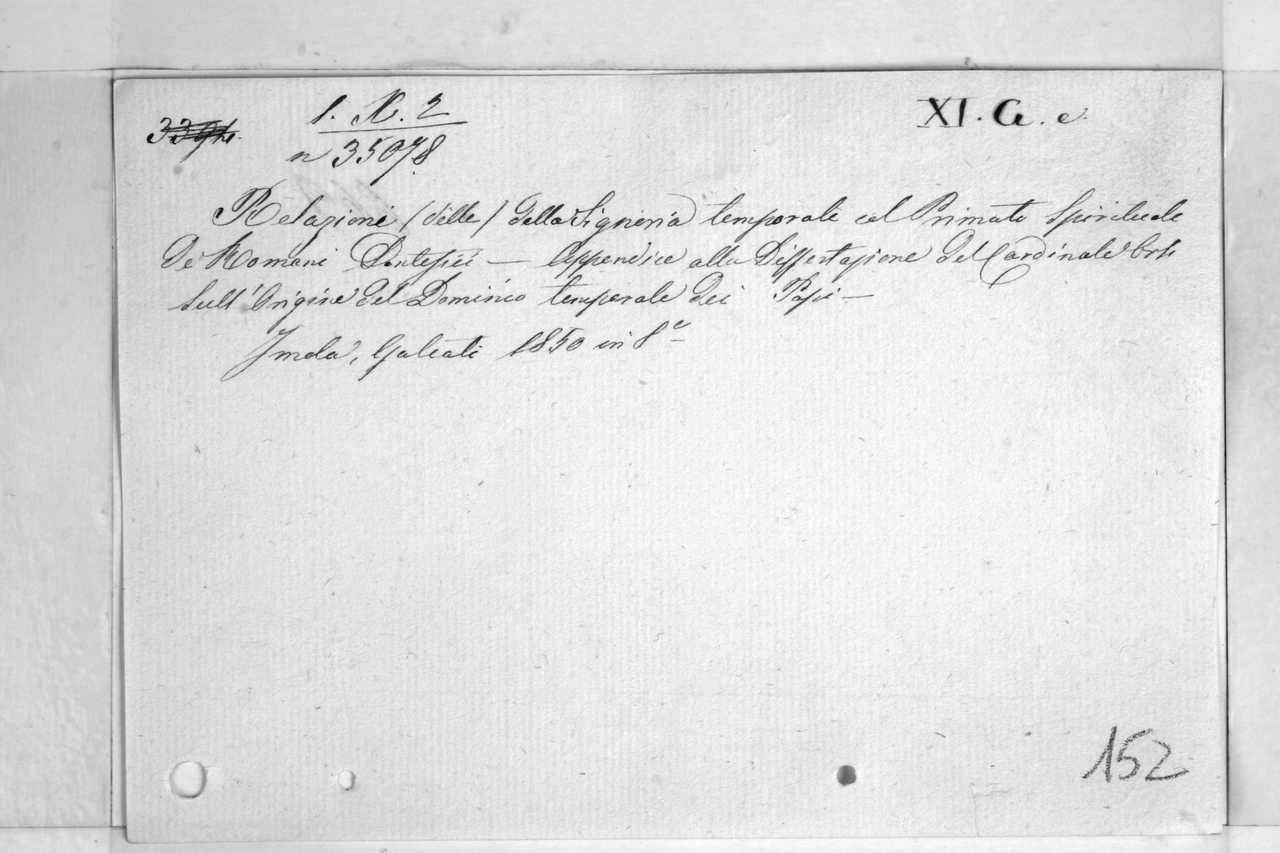 1. K. 2
XI. G. e.
n 35078
Relazioni (delle) della Signoria temporale col Primato Spirituale
de' Romani Pontefici — Appendice alla Dissertazione del Cardinale Orsi
sull'Origine del Dominio temporale dei Papi —
Imola, Galeati 1850 in 8°
152